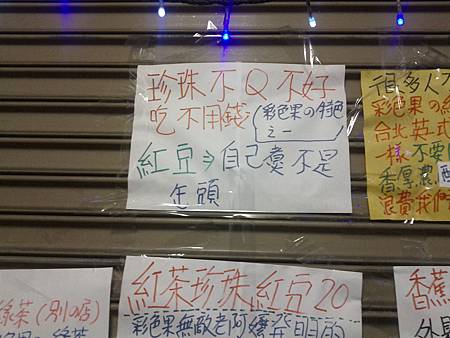 珍珠不Q不好
吃不用錢(彩色果の特色
之一)
紅豆⇒自己煮不是
缶頭
很多人不
彩色果の紅
台北英式
一樣不要
香厚濃醇
浪費我們
紅茶珍珠紅豆20
彩色果無敵老阿嬤發明的
綠茶(別の店)
綠茶
香蕉
外